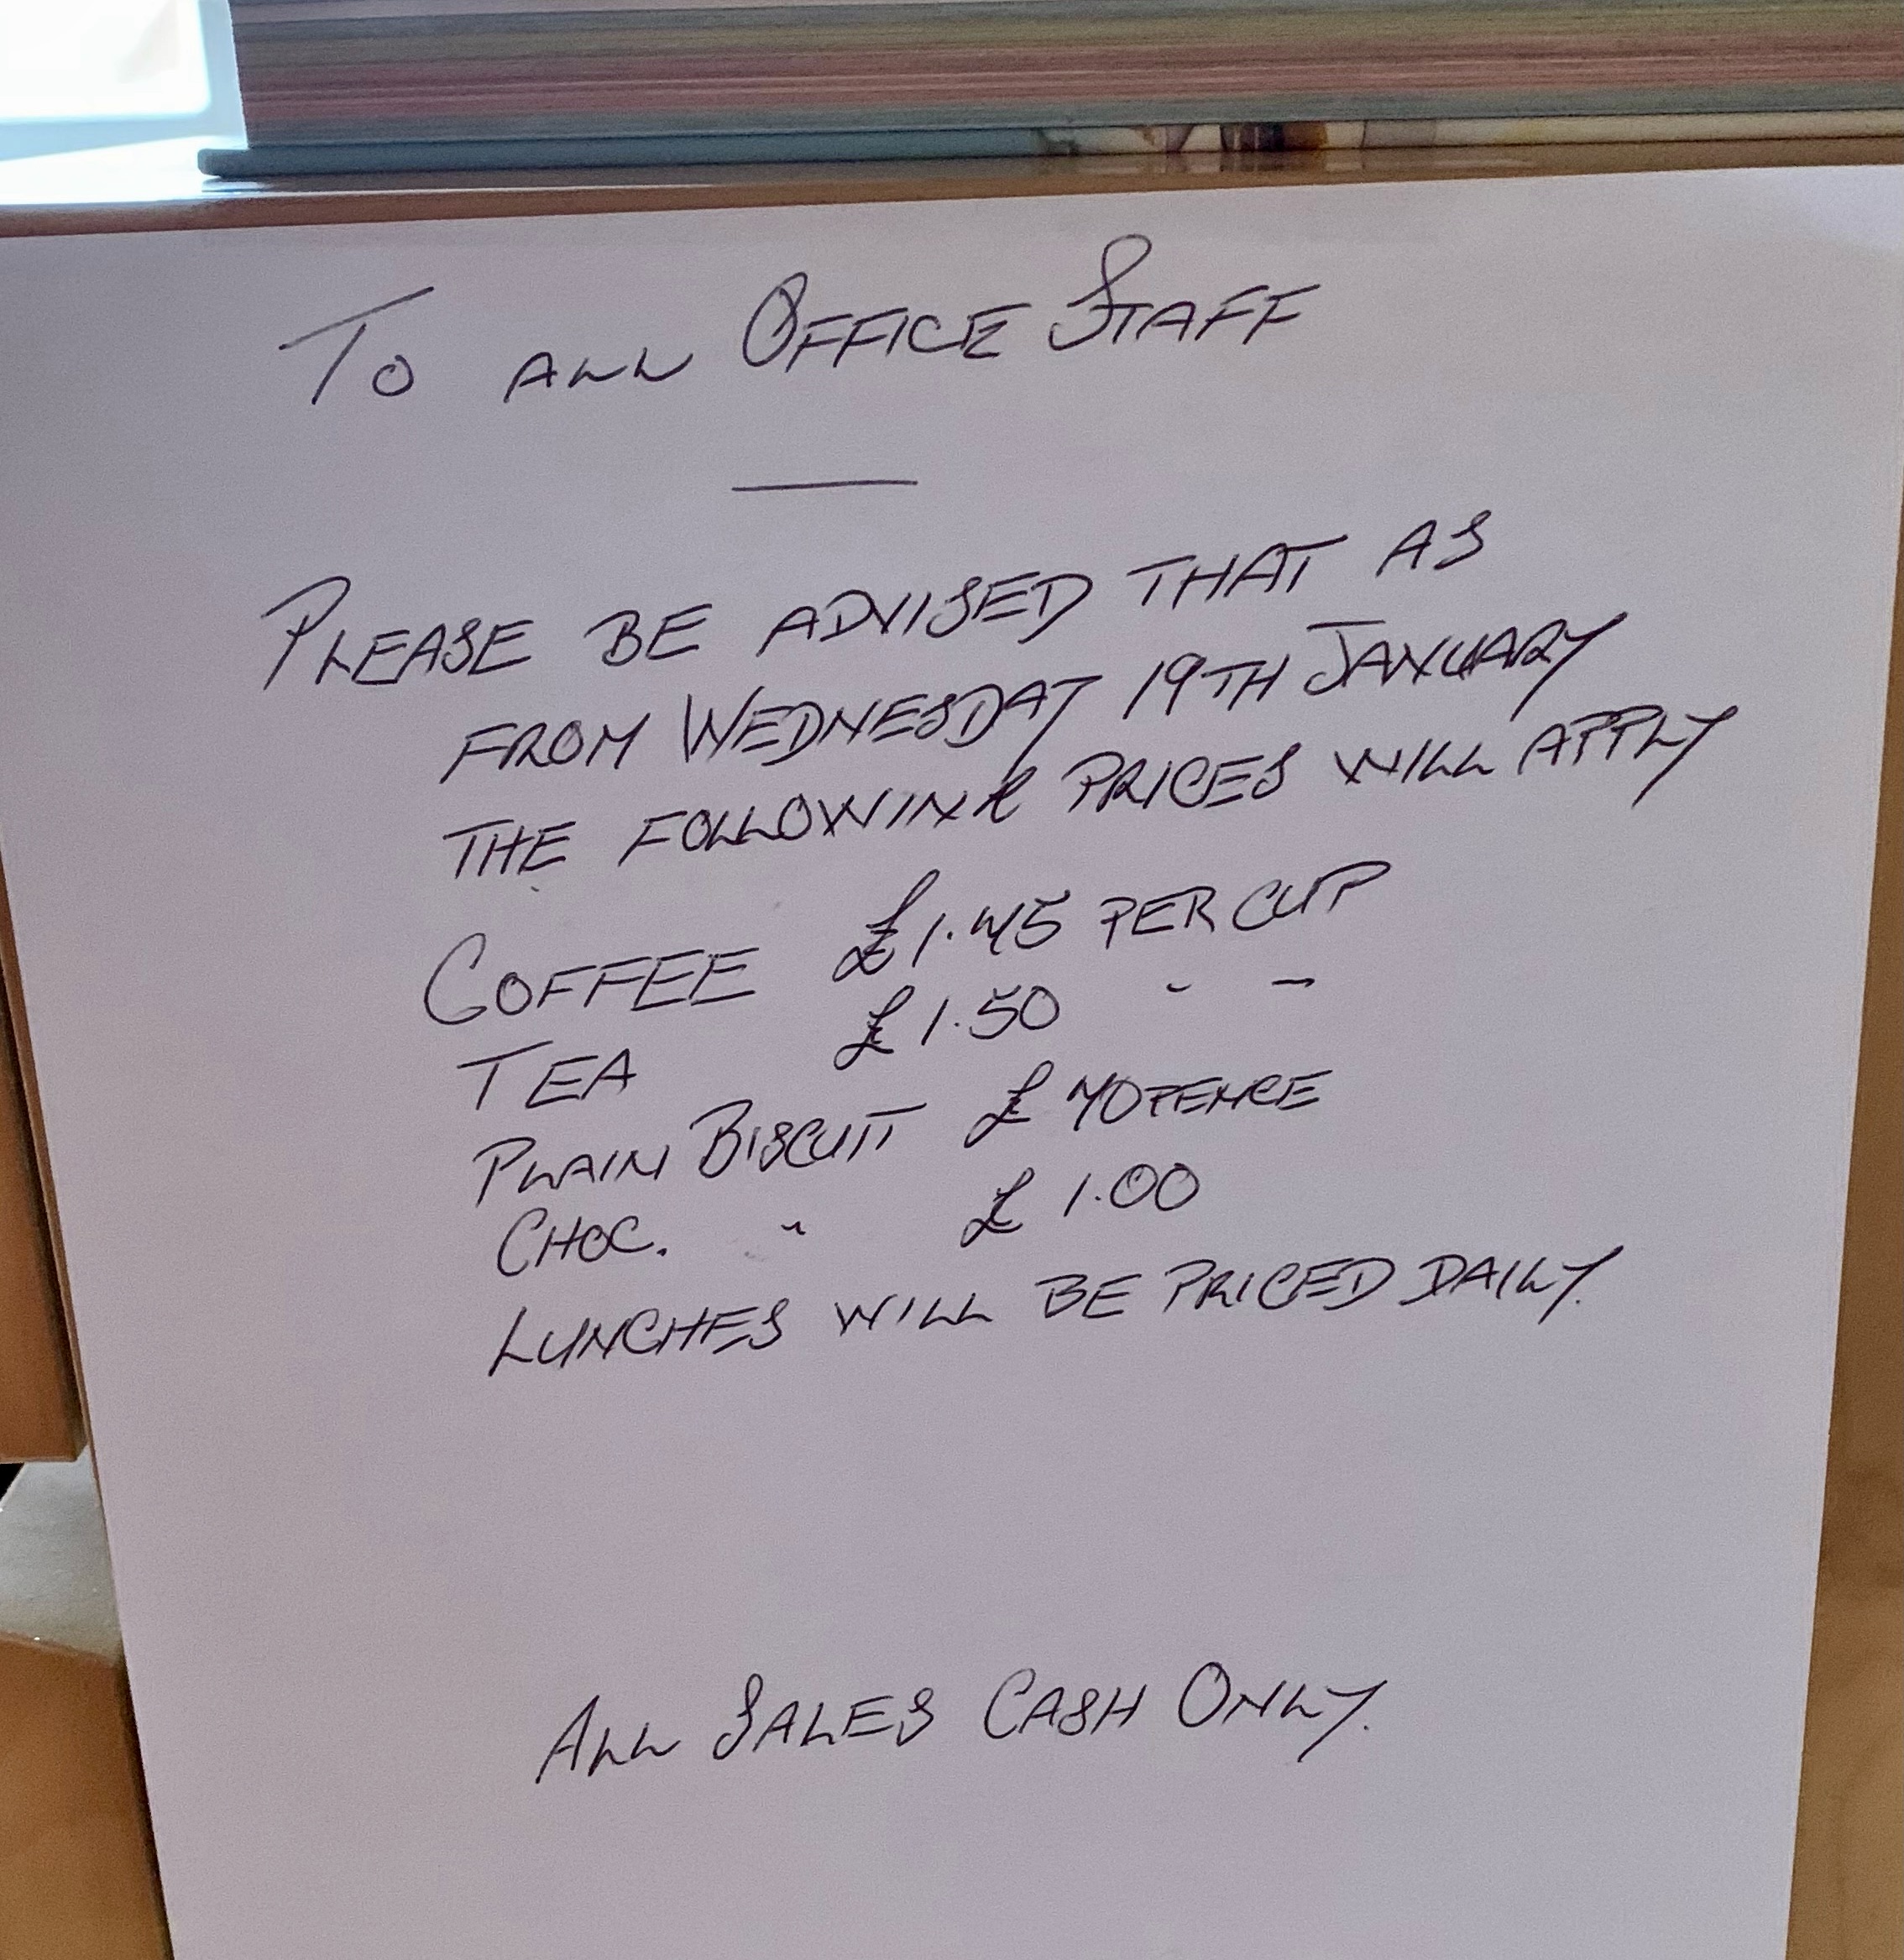 TO ALL OFFICE STAFF
PLEASE BE ADVISED THAT AS
FROM WEDNESDAY 19TH JANUARY
THE FOLLOWING PRICES WILL APPLY
COFFEE £1.45 PER CUP
TEA £1.50 " "
PLAIN BISCUIT £ 40 PENCE
CHOC. " £ 1.00
LUNCHES WILL BE PRICED DAILY.
ALL SALES CASH ONLY.